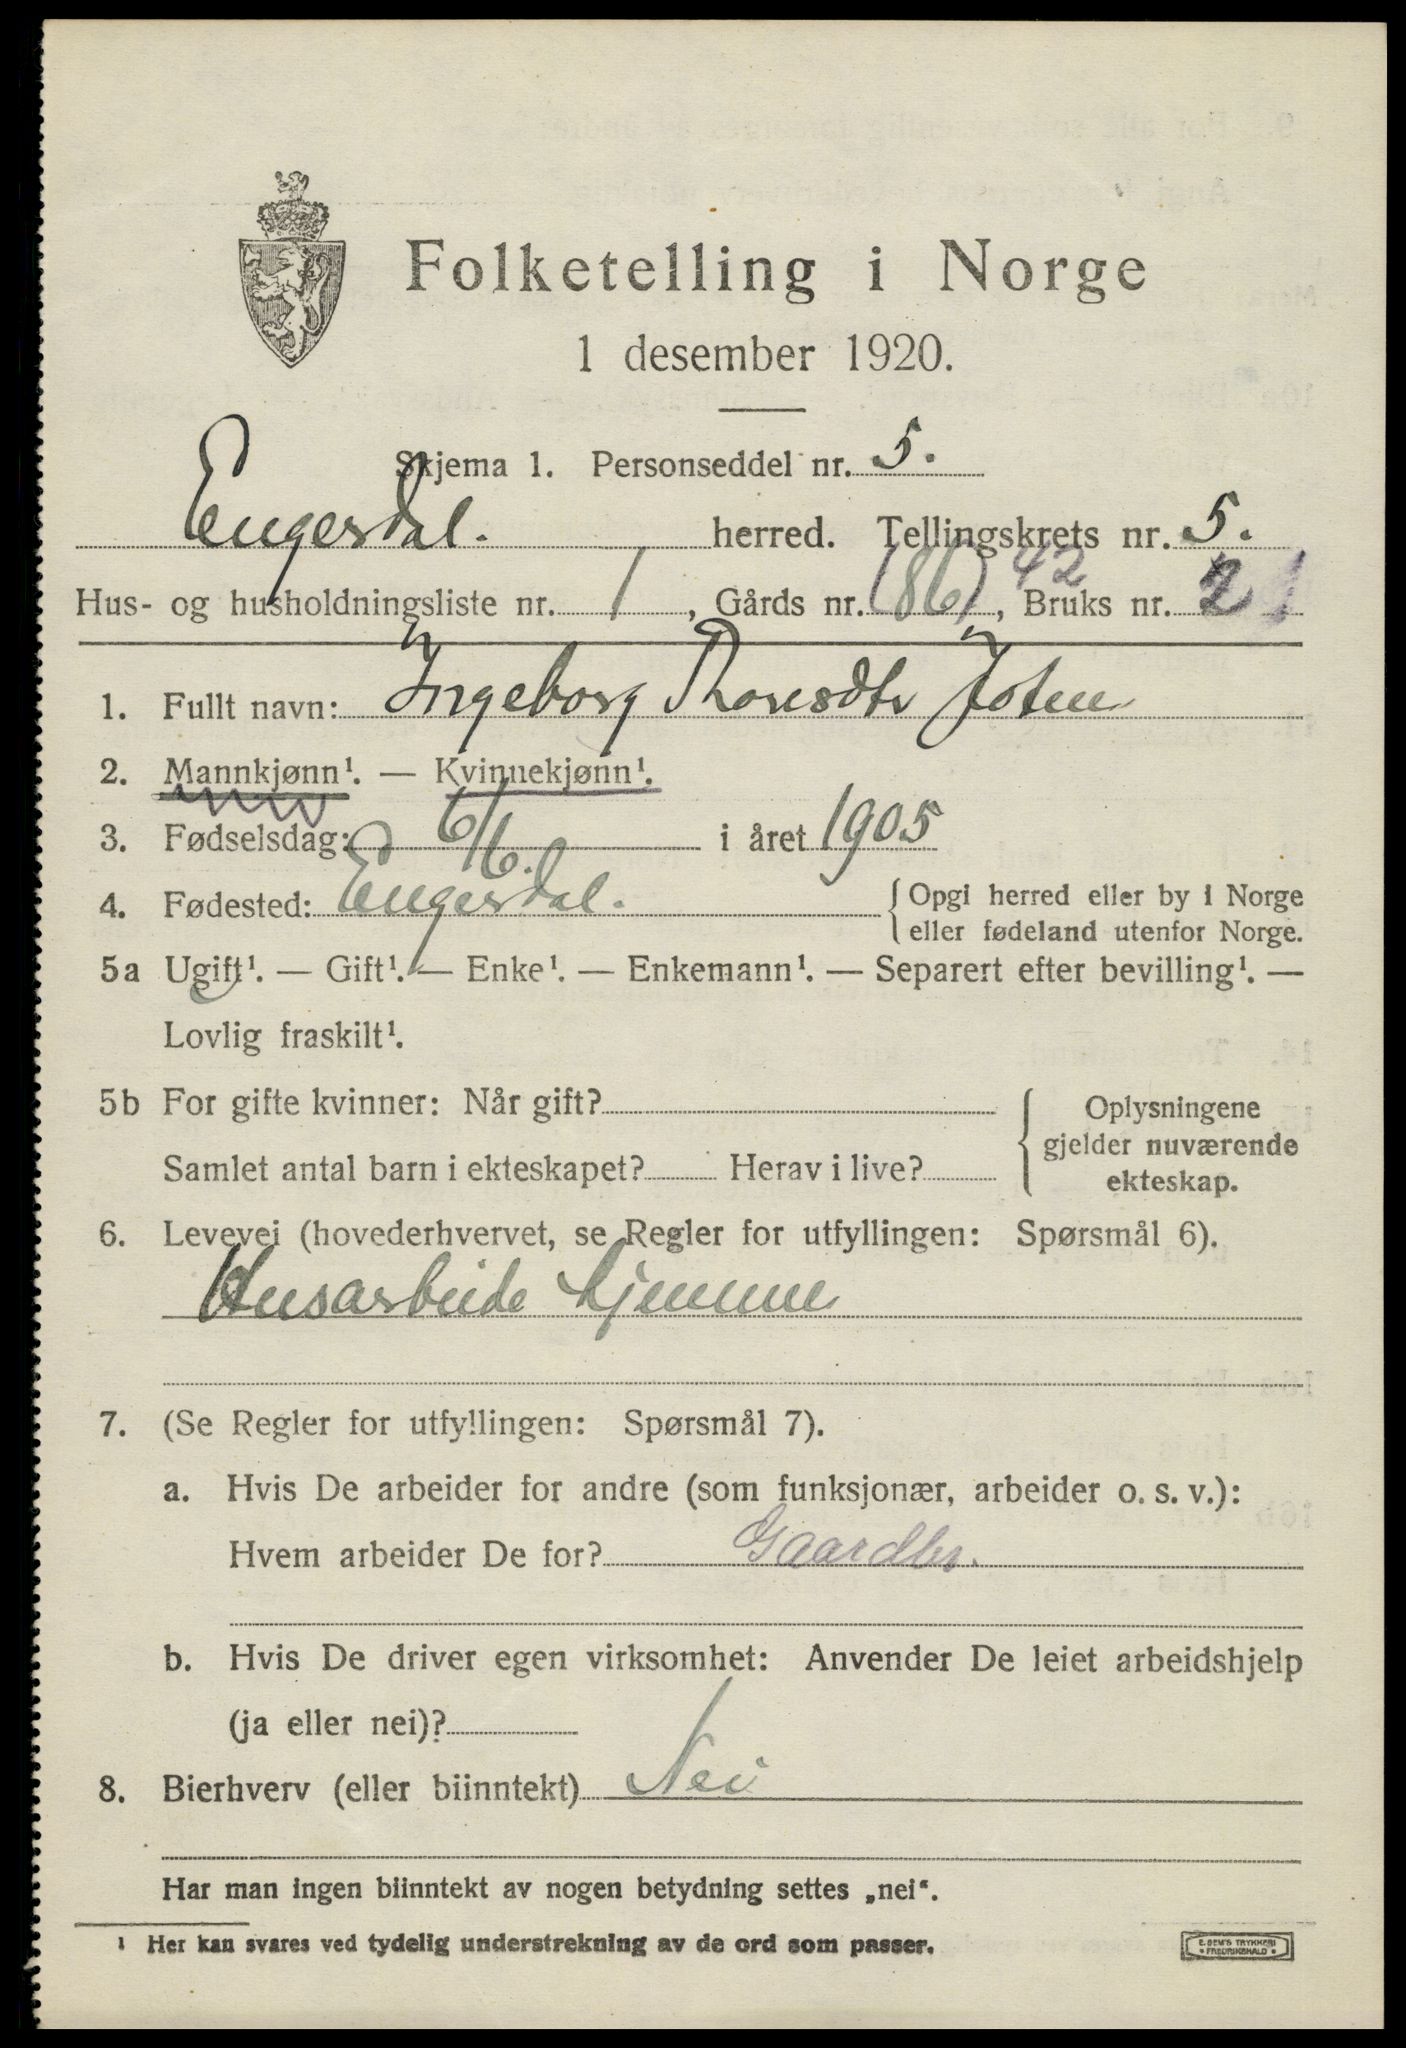 Folketelling i Norge
1 desember 1920.
Skjema 1. Personseddel nr. 5.
Engerdal. herred. Tellingskrets nr. 5.
Hus- og husholdningsliste nr. 1, Gårds nr. (86) 42, Bruks nr. 2 1
1. Fullt navn: Ingeborg Thoresdtr Joten
2. Mannkjønn¹. — Kvinnekjønn¹.
3. Fødselsdag: 6/6. i året 1905
4. Fødested: Engerdal. { Opgi herred eller by i Norge
eller fødeland utenfor Norge.
5a Ugift¹. — Gift¹. — Enke¹. — Enkemann¹. — Separert efter bevilling¹. —
Lovlig fraskilt¹.
5b For gifte kvinner: Når gift? { Oplysningene
gjelder nuværende
Samlet antal barn i ekteskapet? Herav i live? ekteskap.
6. Levevei (hovederhvervet, se Regler for utfyllingen: Spørsmål 6).
Husarbeide hjemme
7. (Se Regler for utfyllingen: Spørsmål 7).
a. Hvis De arbeider for andre (som funksjonær, arbeider o. s. v.):
Hvem arbeider De for? Gaardbr.
b. Hvis De driver egen virksomhet: Anvender De leiet arbeidshjelp
(ja eller nei)?
8. Bierhverv (eller biinntekt) Nei
Har man ingen biinntekt av nogen betydning settes „nei“.
¹ Her kan svares ved tydelig understrekning av de ord som passer.
E. SEM'S TRYKKERI
• FREDRIKSHALD •